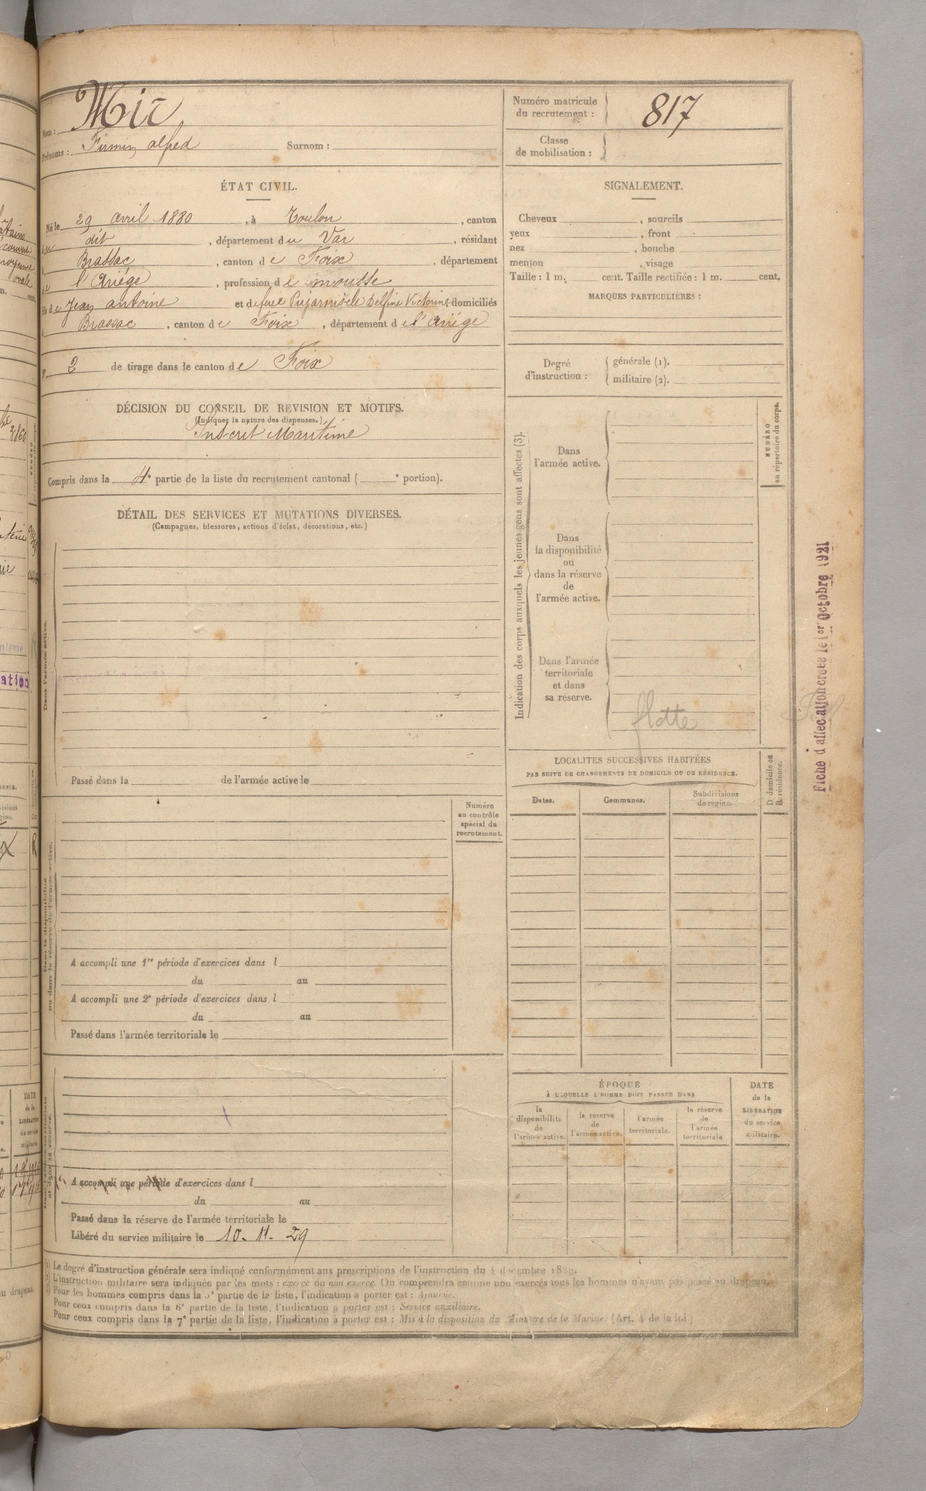 Nom : Mir
Prénoms : Firmin alfred Surnom :
Numéro matricule du recrutement : 817
Classe de mobilisation :
ÉTAT CIVIL.
Né le 29 avril 1880, à Toulon, canton
du dit, département du Var, résidant
à Brassac, canton de Foix, département
de l'Ariége, profession de mousse
fils de Jean antoine et de feue Pujarniscle Delfine Victorine domiciliés
à Brassac, canton de Foix, département de l'Ariége
N° 2 de tirage dans le canton de Foix
DÉCISION DU CONSEIL DE REVISION ET MOTIFS.
(Indiquer la nature des dispenses.)
Inscrit Maritime
Compris dans la 4e partie de la liste du recrutement cantonal ( e portion).
DÉTAIL DES SERVICES ET MUTATIONS DIVERSES.
(Campagnes, blessures, actions d'éclat, décorations, etc.)
Dans l'armée active.
Passé dans la de l'armée active le
Numéro au contrôle spécial du recrutement.
Dans la disponibilité ou dans la réserve de l'armée active.
A accompli une 1re période d'exercices dans l
du au
A accompli une 2e période d'exercices dans l
du au
Passé dans l'armée territoriale le
A accompli une période d'exercices dans l
du au
Passé dans la réserve de l'armée territoriale le
Libéré du service militaire le 10. 11. 29
SIGNALEMENT.
Cheveux , sourcils
yeux , front
nez , bouche
menton , visage
Taille : 1 m. cent. Taille rectifiée : 1 m. cent.
MARQUES PARTICULIÈRES :
Degré d'instruction : générale (1).
militaire (2).
Indication des corps auxquels les jeunes gens sont affectés (3).
NUMÉRO au répertoire du corps.
Dans l'armée active.
Dans la disponibilité ou dans la réserve de l'armée active.
Dans l'armée territoriale et dans sa réserve.
flotte
Fiche d'affectation créée le 1er Octobre 1921
LOCALITÉS SUCCESSIVES HABITÉES
PAR SUITE DE CHANGEMENTS DE DOMICILE OU DE RÉSIDENCE.
Dates. Communes. Subdivisions de région. D. domicile ou R. résidence.
ÉPOQUE
À LAQUELLE L'HOMME DOIT PASSER DANS
la disponibilité de l'armée active. la réserve de l'armée active. l'armée territoriale. la réserve de l'armée territoriale.
DATE de la LIBÉRATION du service militaire.
Le degré d'instruction générale sera indiqué conformément aux prescriptions de l'instruction du 4 décembre 1889.
L'instruction militaire sera indiquée par les mots : exercé ou non exercé. On comprendra comme non exercés tous les hommes n'ayant pas passé au drapeau.
Pour les hommes compris dans la 5e partie de la liste, l'indication à porter est : Ajourné.
Pour ceux compris dans la 6e partie de la liste, l'indication à porter est : Service auxiliaire.
Pour ceux compris dans la 7e partie de la liste, l'indication à porter est : Mis à la disposition du Ministre de la Marine (Art. 4 de la loi)